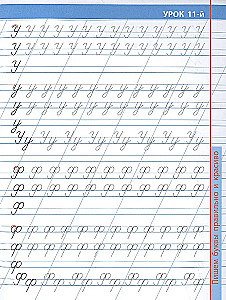 УРОК 11-й
У У У У У У У У У У У У У У
У У У У У У У У У У У У У У
У
у у у у у у у у у у у у у у
у у у у у у у у у у у у у у
у
Уу Уу Уу Уу Уу Уу Уу
Ф Ф Ф Ф Ф Ф Ф Ф Ф Ф
Ф Ф Ф Ф Ф Ф Ф Ф Ф Ф
Ф
ф ф ф ф ф ф ф ф ф ф
ф ф ф ф ф ф ф ф ф ф
ф
Фф Фф Фф Фф Фф Фф
Пишем буквы правильно и красиво